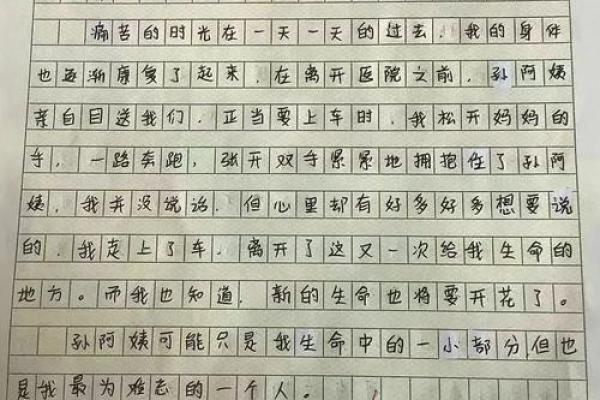 痛苦的时光在一天一天的过去,我的身体
也逐渐康复了起来,在离开医院之前,孙阿姨
亲自目送我们,正当要上车时,我松开妈妈的
手,一路奔跑,张开双手累累地拥抱住了孙阿
姨,我并没说话,但心里却有好多好多想要说
的,我走上了车,离开了这又一次给我生命的
地方。而我也知道,新的生命也将要开花了。
孙阿姨可能只是我生命中的一小部分,但也
是我最为难忘的一个人。